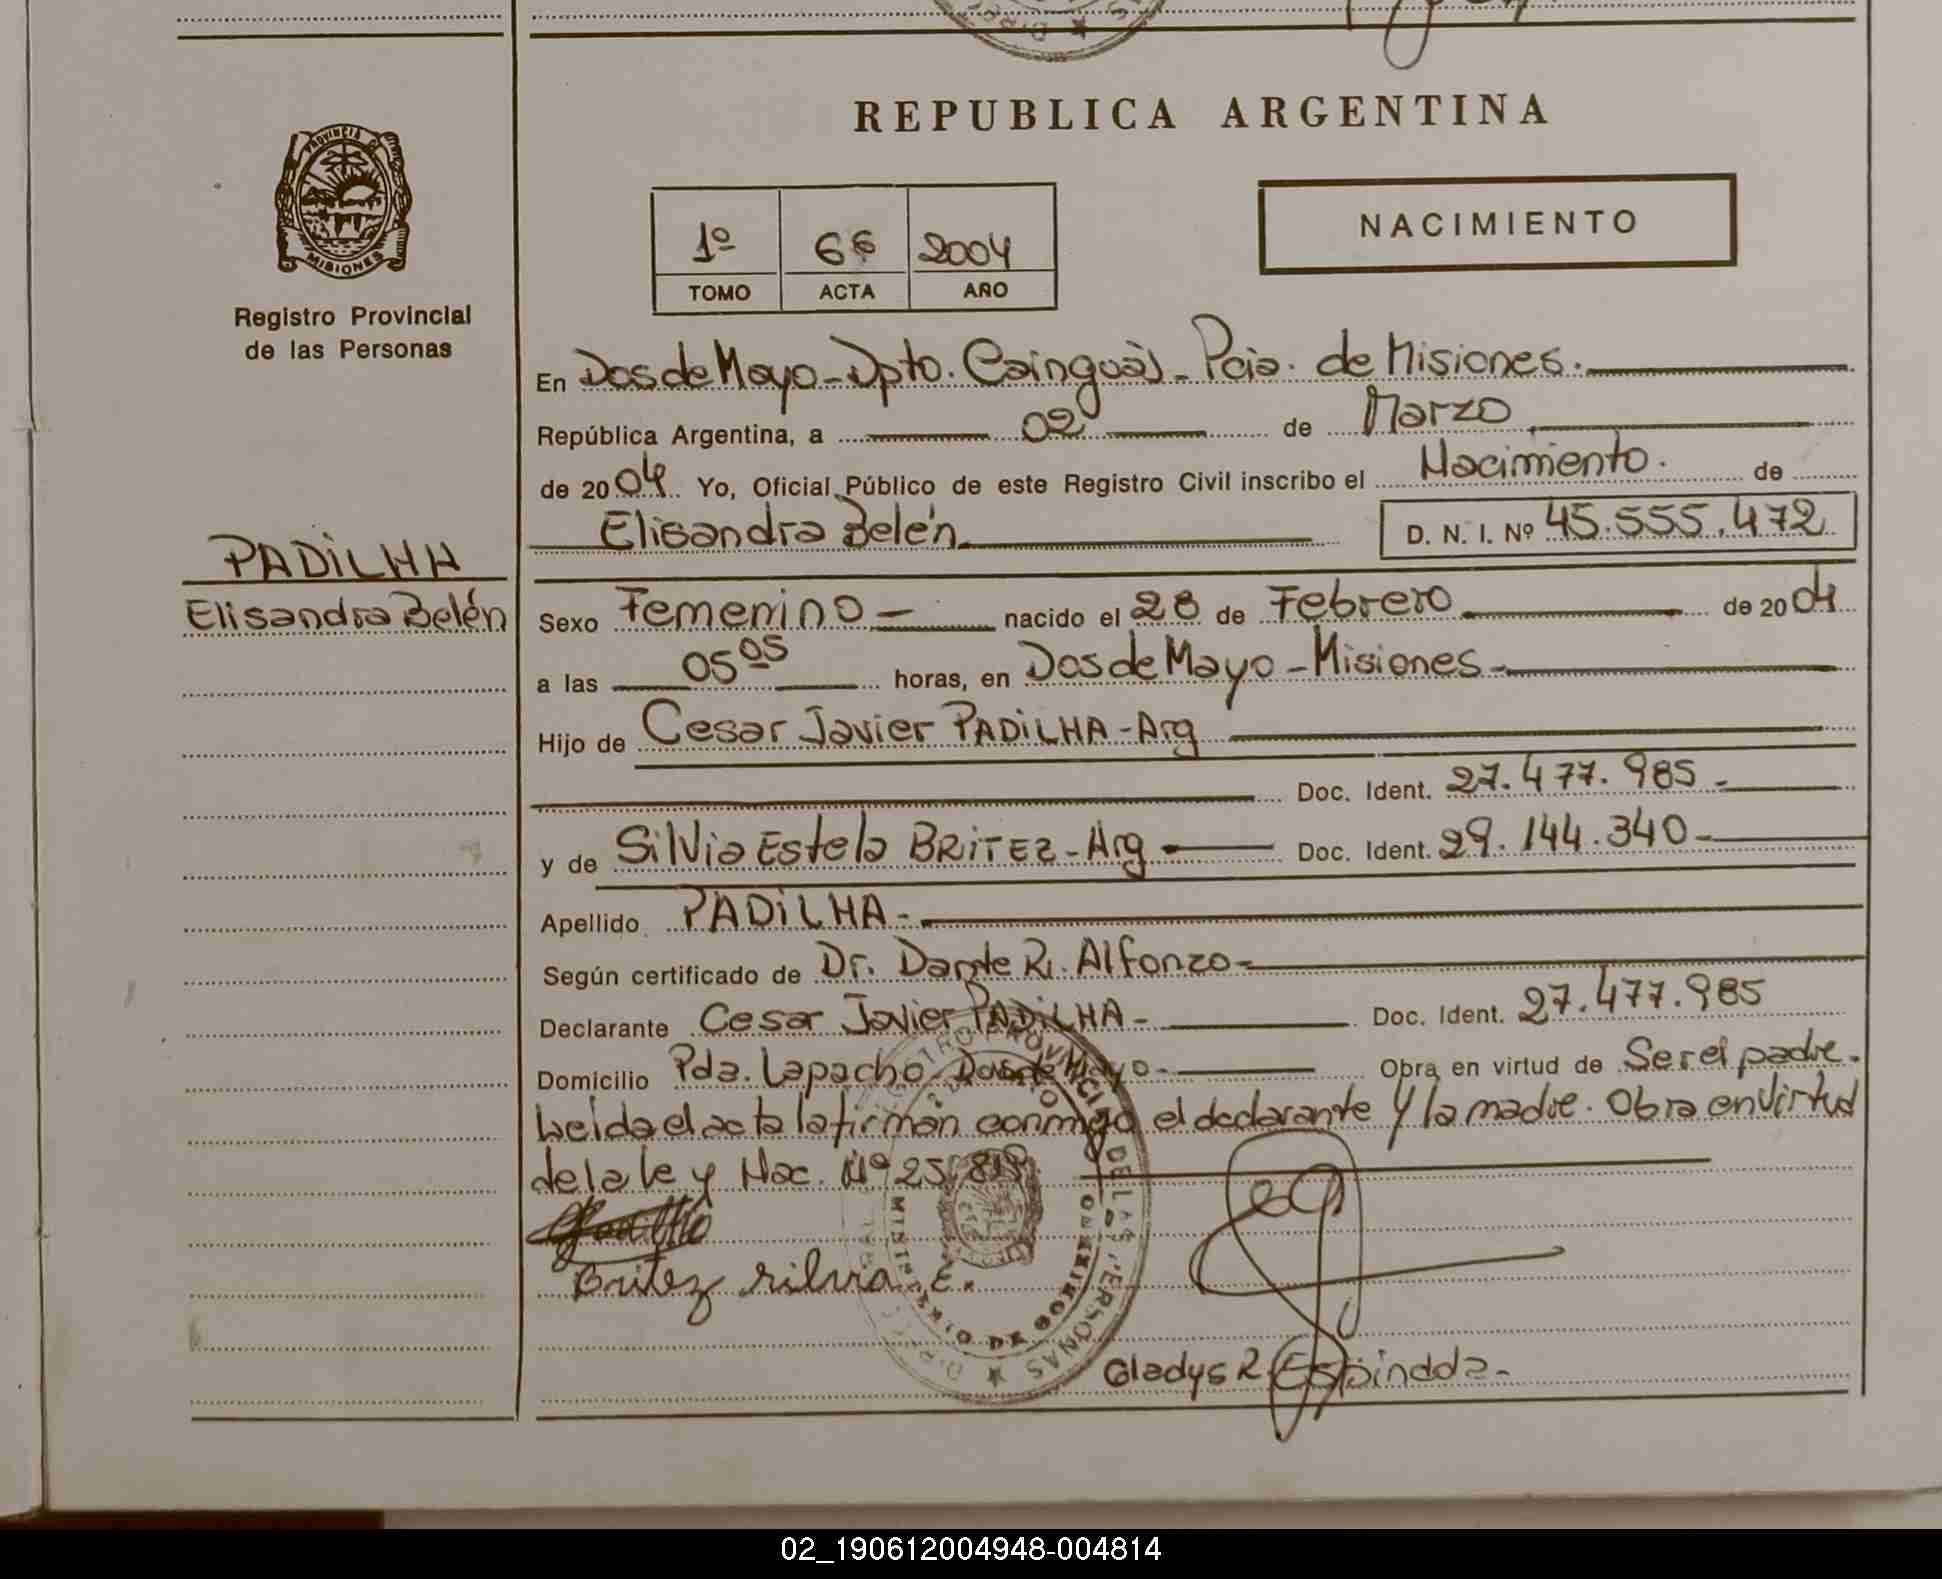 REPUBLICA ARGENTINA
PROVINCIA DE
MISIONES
Registro Provincial
de las Personas
1º 66 2004
TOMO ACTA AÑO
NACIMIENTO
En Dos de Mayo - Dpto. Cainguás - Pcia. de Misiones.
República Argentina, a 02 de Marzo
de 2004. Yo, Oficial Público de este Registro Civil inscribo el Nacimiento. de
Elisandra Belén D. N. I. Nº 45.555.472
PADiLHA
Elisandra Belén
Sexo Femenino nacido el 28 de Febrero de 2004
a las 05 05 horas, en Dos de Mayo - Misiones -
Hijo de Cesar Javier PADiLHA - Arg
Doc. Ident. 27.477.985 -
y de Silvia Estela BRiTEZ - Arg - Doc. Ident. 29.144.340 -
Apellido PADiLHA -
Según certificado de Dr. Dante R. Alfonzo -
Declarante Cesar Javier PADiLHA - Doc. Ident. 27.477.985
Domicilio Pda. Lapacho Dos de Mayo - Obra en virtud de Ser el padre.
Leida el acta la firman conmigo el declarante y la madre. Obra en virtud
de la ley Nac. Nº 25.819.
Britez Silvia E.
Gladys R. Espindola -
02_190612004948-004814